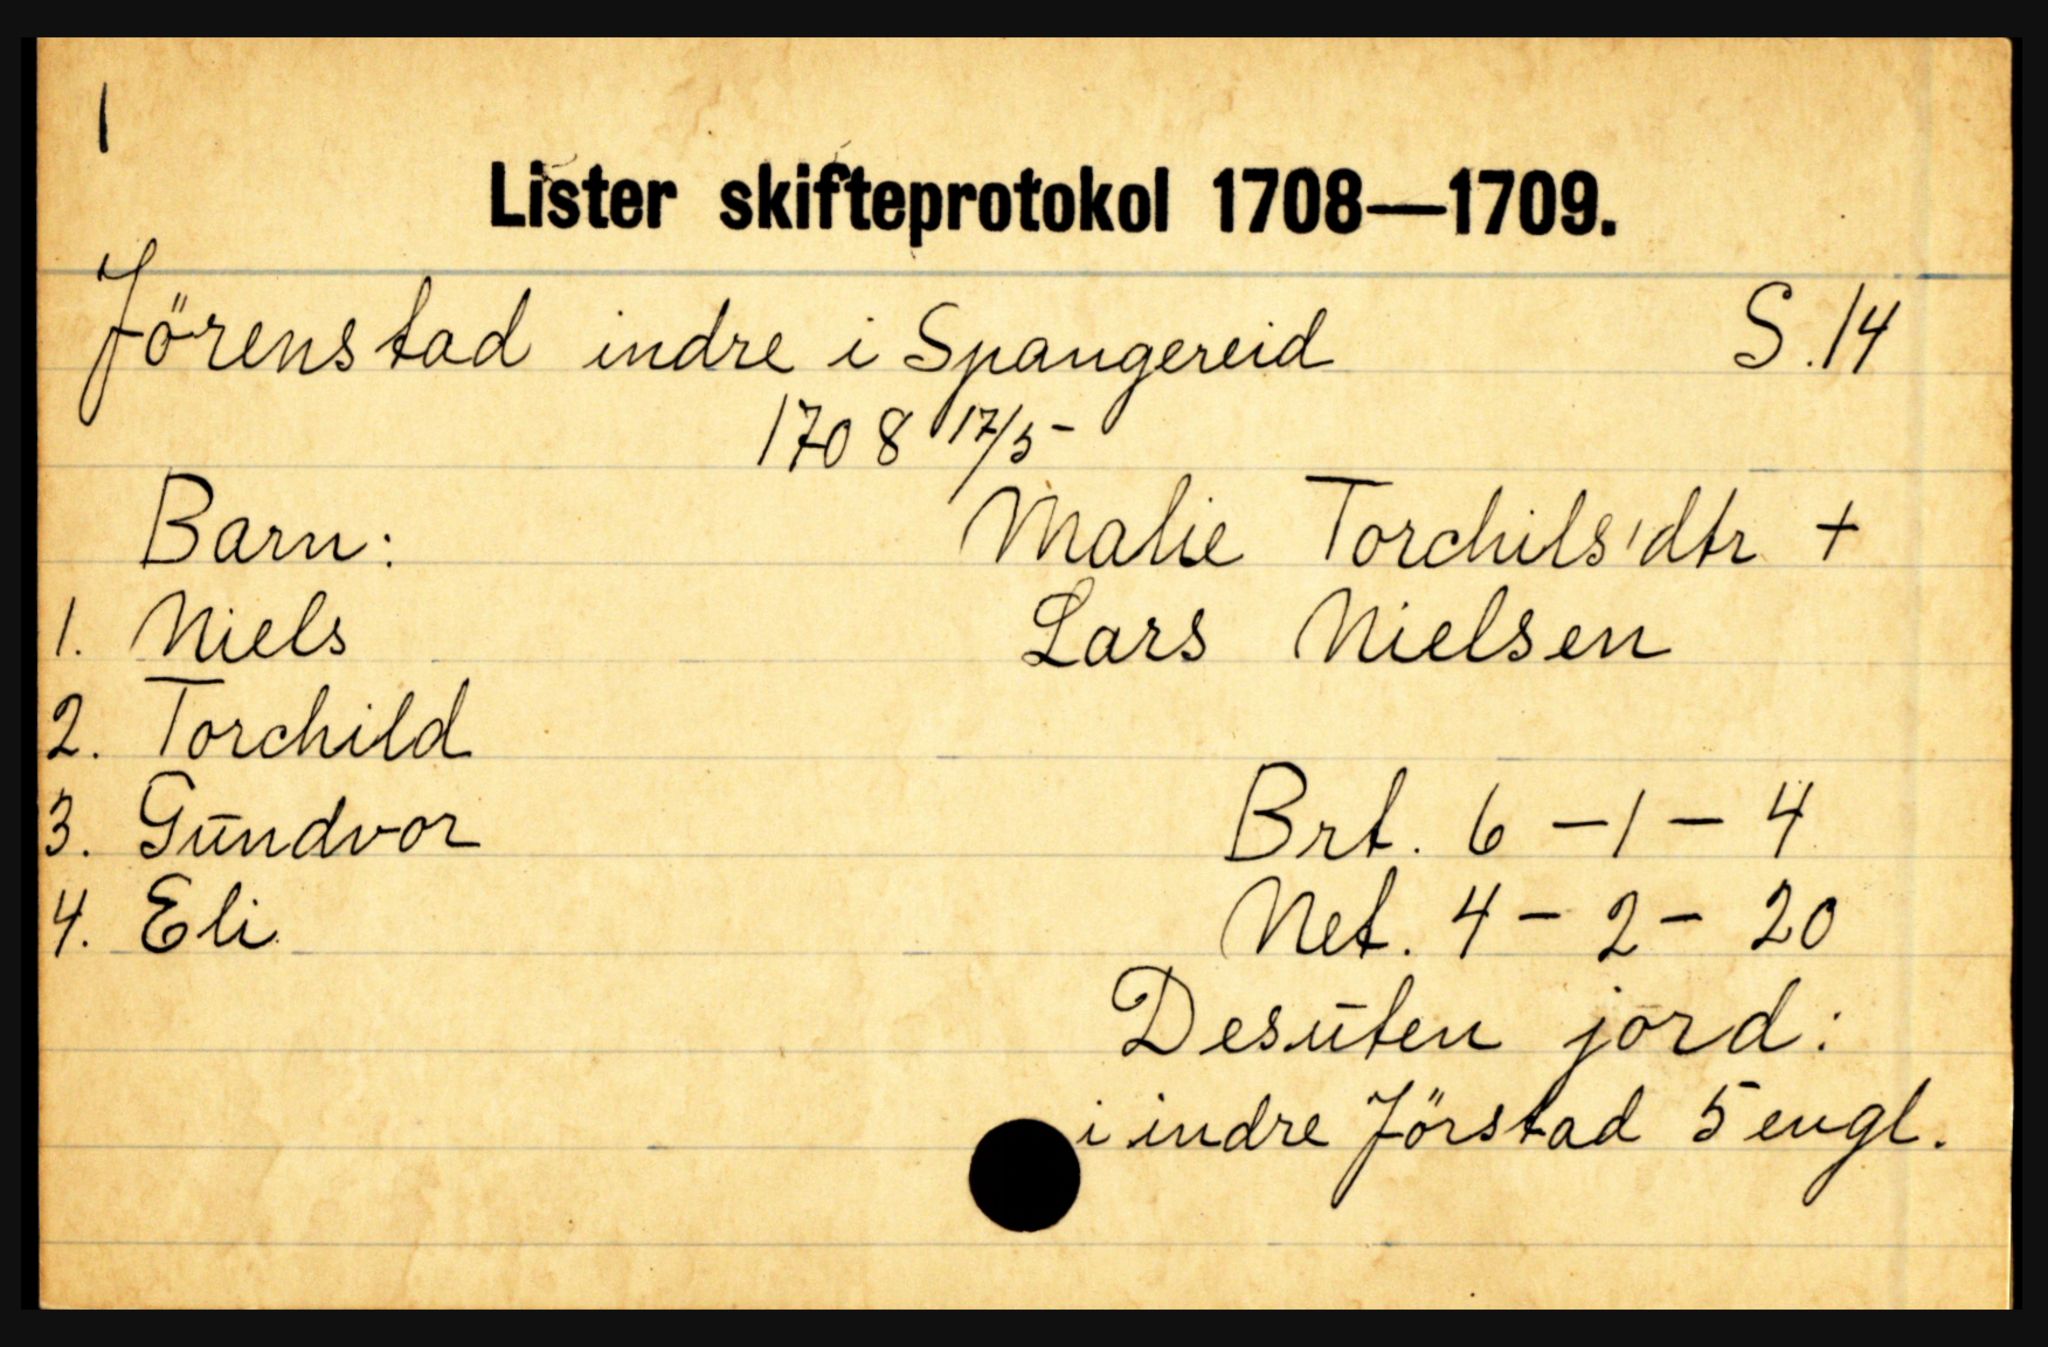 1
Lister skifteprotokol 1708—1709.
Jörenstad indre i Spangereid S. 14
1708 17/5 -
Barn: Malie Torchils'dtr +
1. Niels Lars Nielsen
2. Torchild
3. Gundvor Brt. 6 - 1 - 4
4. Eli Net. 4 - 2 - 20
Desuten jord:
i indre Jörstad 5 engl.